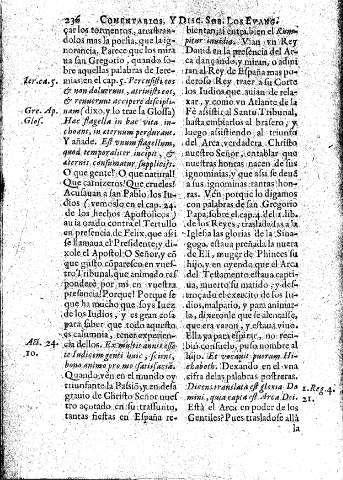 236 COMENTARIOS, Y DISC. SOB. LOS EVANG.
çar los tormentos, antes bran-
dolos mas la porfia, que la ig-
norancia, Parece que los mira-
ua san Gregorio, quando so-
bre aquellas palabras de Iere-
Ier.ca.5. mias en el cap. 5. Percussisti eos
& non doluerunt, attristi eos,
& renuerunt accipere discipli-
Gre. Ap. nam (dixo, y lo trae la Glossa)
Glos. Hac flagella in hac vita in-
choant, in æternum perdurant.
Y añade. Est vnum flagellum,
quod temporaliter incipit, &
æternis consumatur supplicijs.
O que gente! O que natural!
Que carnizeros! Que crueles!
Acusauan a san Pablo, los Iu-
dios (vemoslo en el cap. 24.
de los hechos Apostolicos)
auia orado contra el Tertullo
en presencia de Felix, que assi
se llamaua el Presidente; y di-
xole el Apostol: O Señor, y cõ
que gusto cõparesco en vues-
tro Tribunal, que animado res
ponderè por mi en vuestra
presencia! Porque? Porque se
que ha mucho que soys Iuez
de los Iudios, y es gran cosa
para saber que todo aquesto
es calumnia, tener experien-
Act. 24. cia dellos. Ex multis annis esse
10. te Iudicem genti huic, sciens,
bono animo pro me satisfaciã.
Quando, vèn en el mundo oy
triunfante la Passiõ, y en desa-
grauio de Christo Señor nues
tro açotado en su trassunto,
tantas fiestas en España re-
bientan, ai entra bien el Rum-
pitur inuidia. Vian vn Rey
Dauid en la presencia del Arca
dançando, y miran, o admi-
ran al Rey de España mas po-
deroso Rey traer a su Corte
los Iudios que auian de rela-
xar, y como vn Atlante de la
Fè assistir al Santo Tribunal,
hasta embiarlos al brasero, y
luego assistiendo al triunfo
del Arca verdadera, Christo
nuestro Señor, entablar que
nuestras honras nacen de sus
ignominias, y que assi se deuẽ
a sus ignominias tantas hon-
ras. Vèn, porque lo digamos
con palabras de san Gregorio
Papa, sobre el cap. 4. del 1. lib.
de los Reyes, trasladadas a la
Iglesia las glorias de la Sina-
goga, estaua preñada la nuera
de Eli, muger de Phinees su
hijo, y en oyendo que el Arca
del Testamento estaua capti-
ua, muerto su marido, y des-
troçado el exercito de los Iu-
dios, malpario, y para animar-
la, dixeronle que se alentasse,
que era varon, y estaua viuo.
Ella ya para espirar, no reci-
biò consuelo, puso nombre al
hijo. Et vocauit puerum Hi-
chaboth. Dexando en el vna
cifra de las palabras postreras.
Dicens translata est gloria Do 1. Reg. 4.
mini, quia capta est Arca Dei. 21.
Està el Arca en poder de los
Gentiles? Pues trasladose allà
la